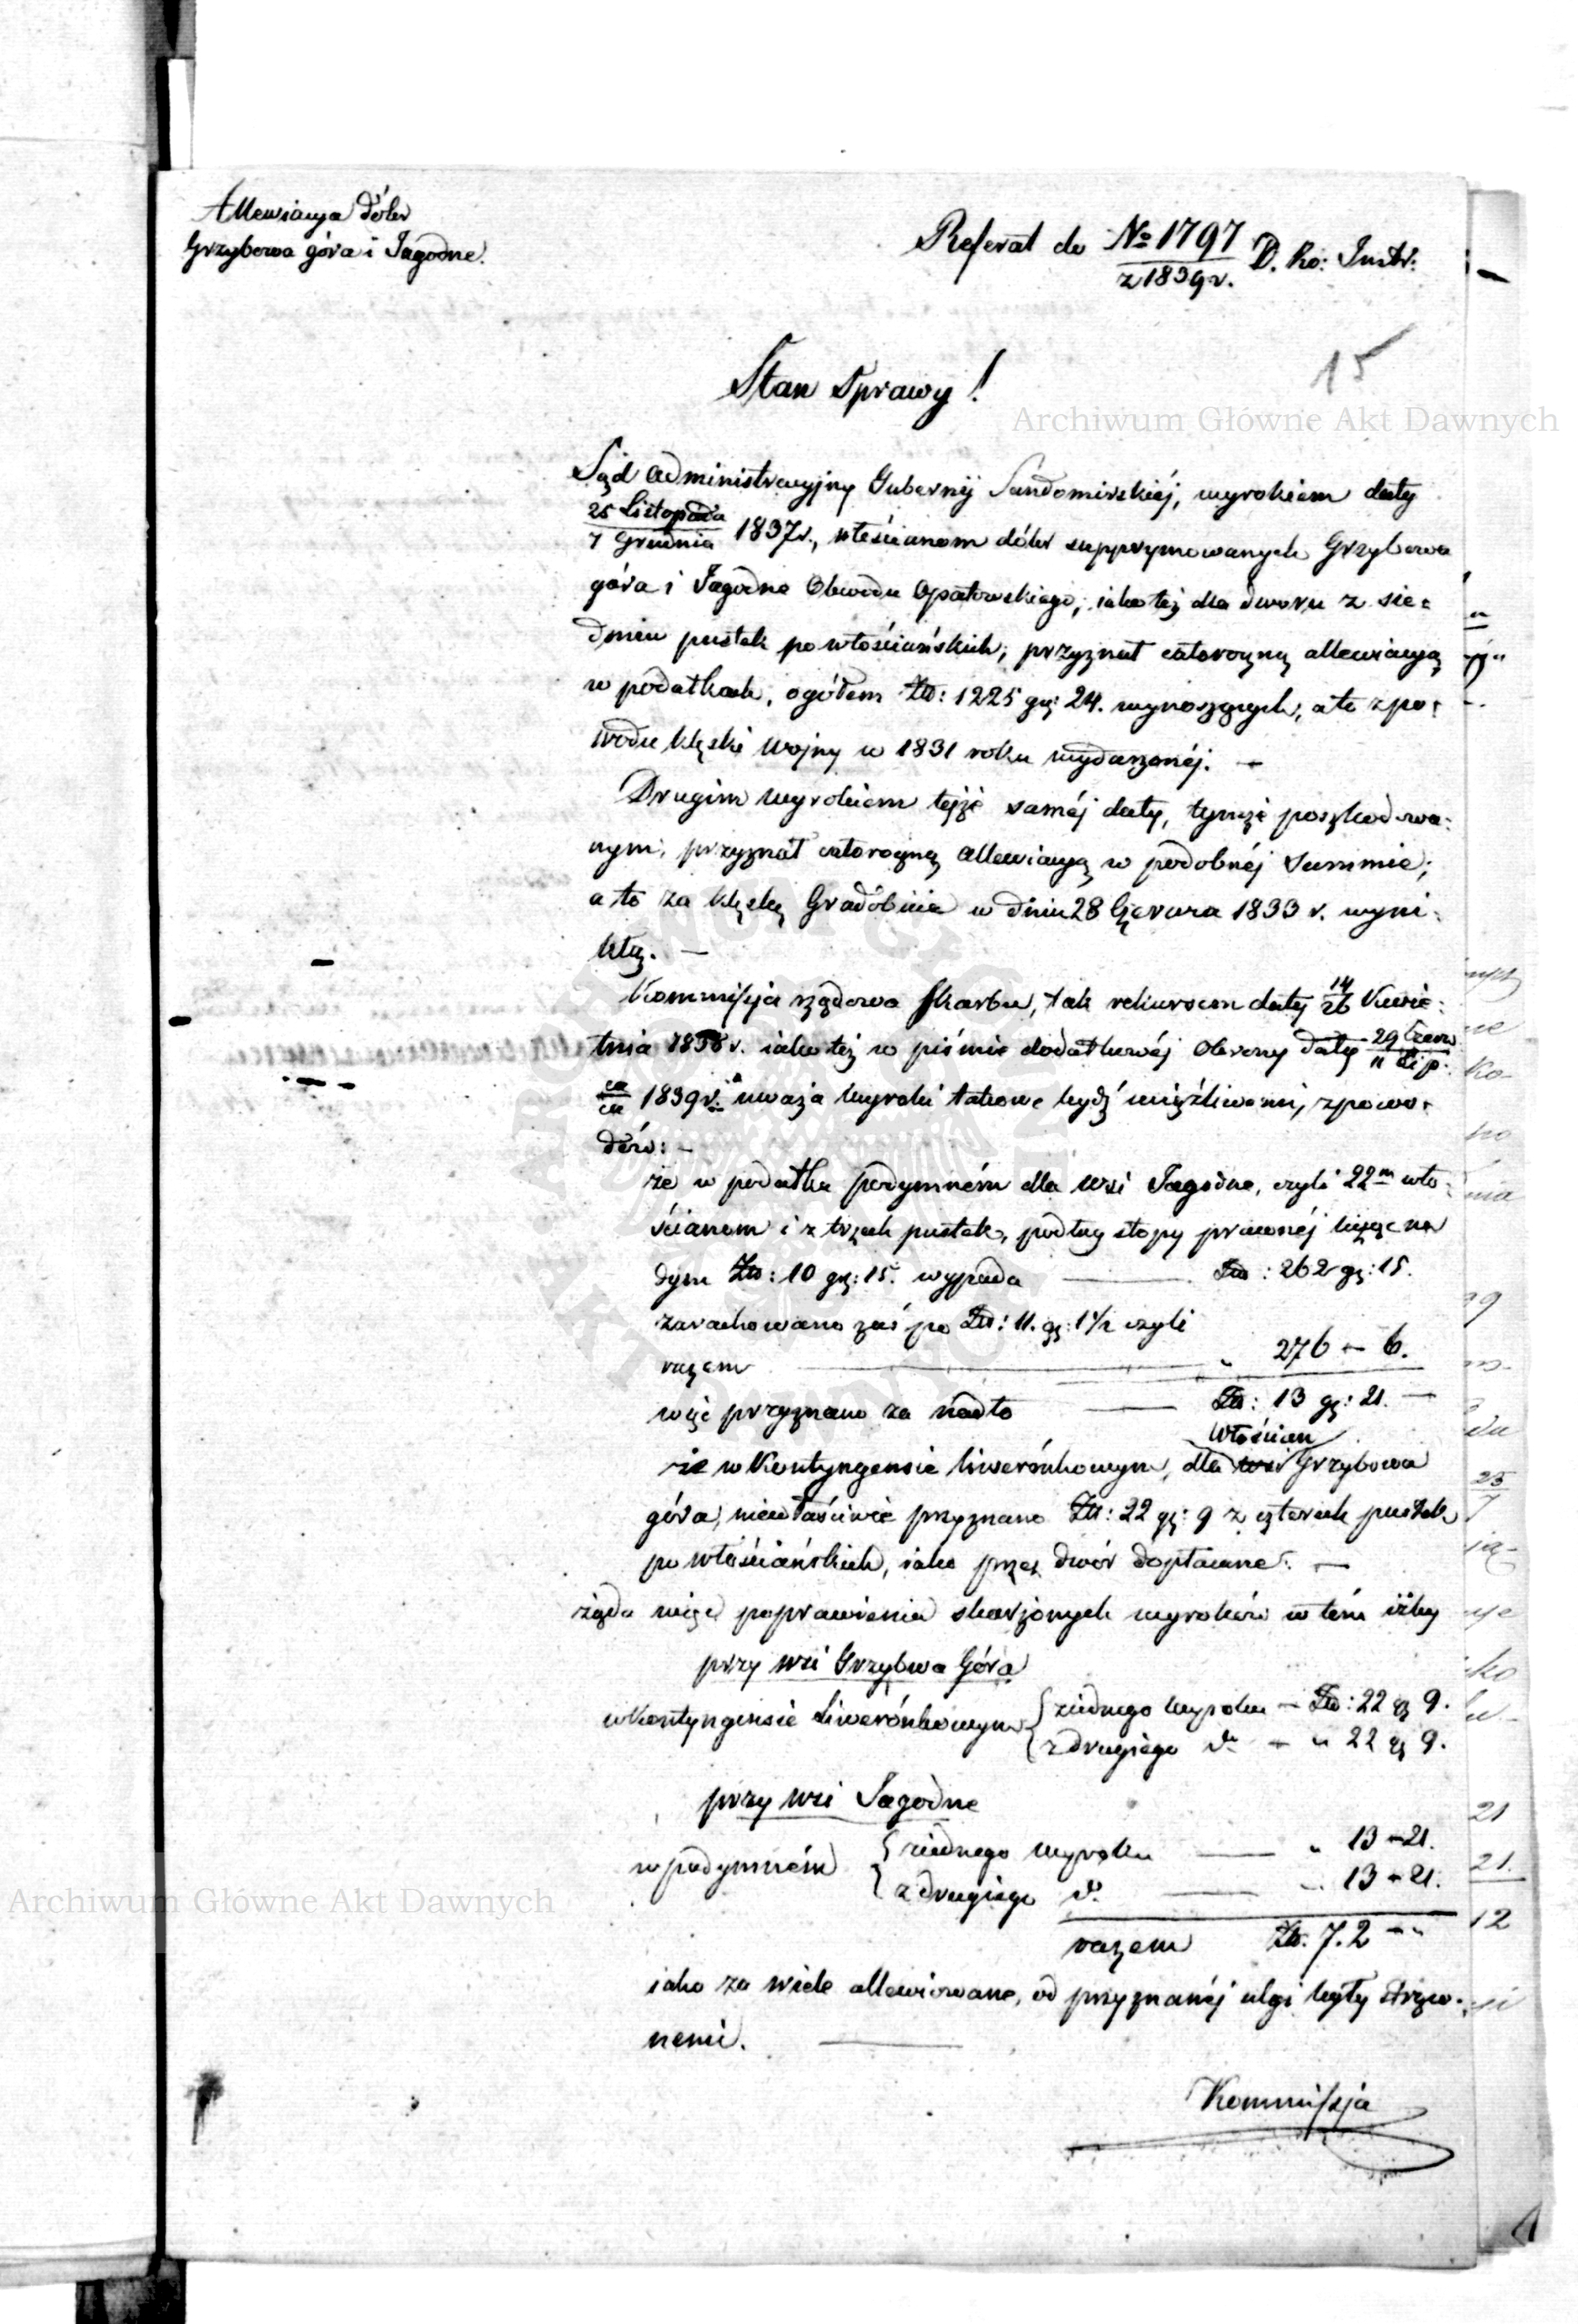 Allewiacya Dóbr
Grzybowa góra i Jagodne.
Referat do No 1797 D. Ko: Instr:
z 1839 r.
15
Stan Sprawy!
Archiwum Główne Akt Dawnych
Sąd Administracyjny Gubernij Sandomirskiéj, wyrokiem daty
25 Listopada
7 Grudnia 1837 r., włościanom dóbr supprymowanych Grzybowa
góra i Jagodne Obwodu Opatowskiego, iako też dla dworu z sie=
dmiu pustek po włościańskich, przyznał całoroczną allewiacyą
w podatkach, ogółem Złł: 1225 gr: 24. wynoszących, a to z po=
wodu klęski wojny w 1831 roku wydarzonéj. —
Drugim wyrokiem tejże saméj daty, tymże poszkodowa=
nym, przyznał całoroczną allewiacyą w podobnéj Summie,
a to za klęskę Gradobicia w dniu 28 Czerwca 1833 r. wyni=
kłą. —
Kommissyja rządowa Skarbu, tak rekursem daty 14/26 Kwie=
tnia 1838 r. iako też w piśmie dodatkowéj Obrony daty 29 Czerw
11 Lip
ca
ca 1839 r. uważa wyroki takowe bydź uciążliwemi, z powo=
dów: —
że w podatku podymném dla wsi Jagodne, czyli 22m wło=
ścianom i z trzech pustek, podług stopy prawnéj licząc na
dym Złł: 10 gr: 15. wypada — Złł: 262 gr: 15.
zarachowano zaś po Złł: 11. gr: 1 1/2 czyli
razem — „ 276 — 6.
więc przyznano za nadto — Złł: 13 gr: 21. —
włościan
że w Kontyngensie liwerónkowym, dla wsi Grzybowa
góra, niewłaściwie przyznano Złł: 22 gr: 9 z czterech pustek
po włościańskich, iako przez dwór dopłacane. —
żąda więc poprawienia skarżonych wyroków w tém iżby
przy wsi Grzybwa Góra
w Kontyngensie Liwerónkowym { z iednego wyroku — Złł: 22 gr 9.
z drugiego do — „ 22 gr 9.
przy wsi Jagodne
w podymném { z iednego wyroku — „ 13 — 21.
z drugiego do. — „ 13 — 21.
razem Złł. 72 — „
iako za wiele allewiowane, od przyznanéj ulgi były strąco=
nemi. —
Kommissja
Archiwum Główne Akt Dawnych